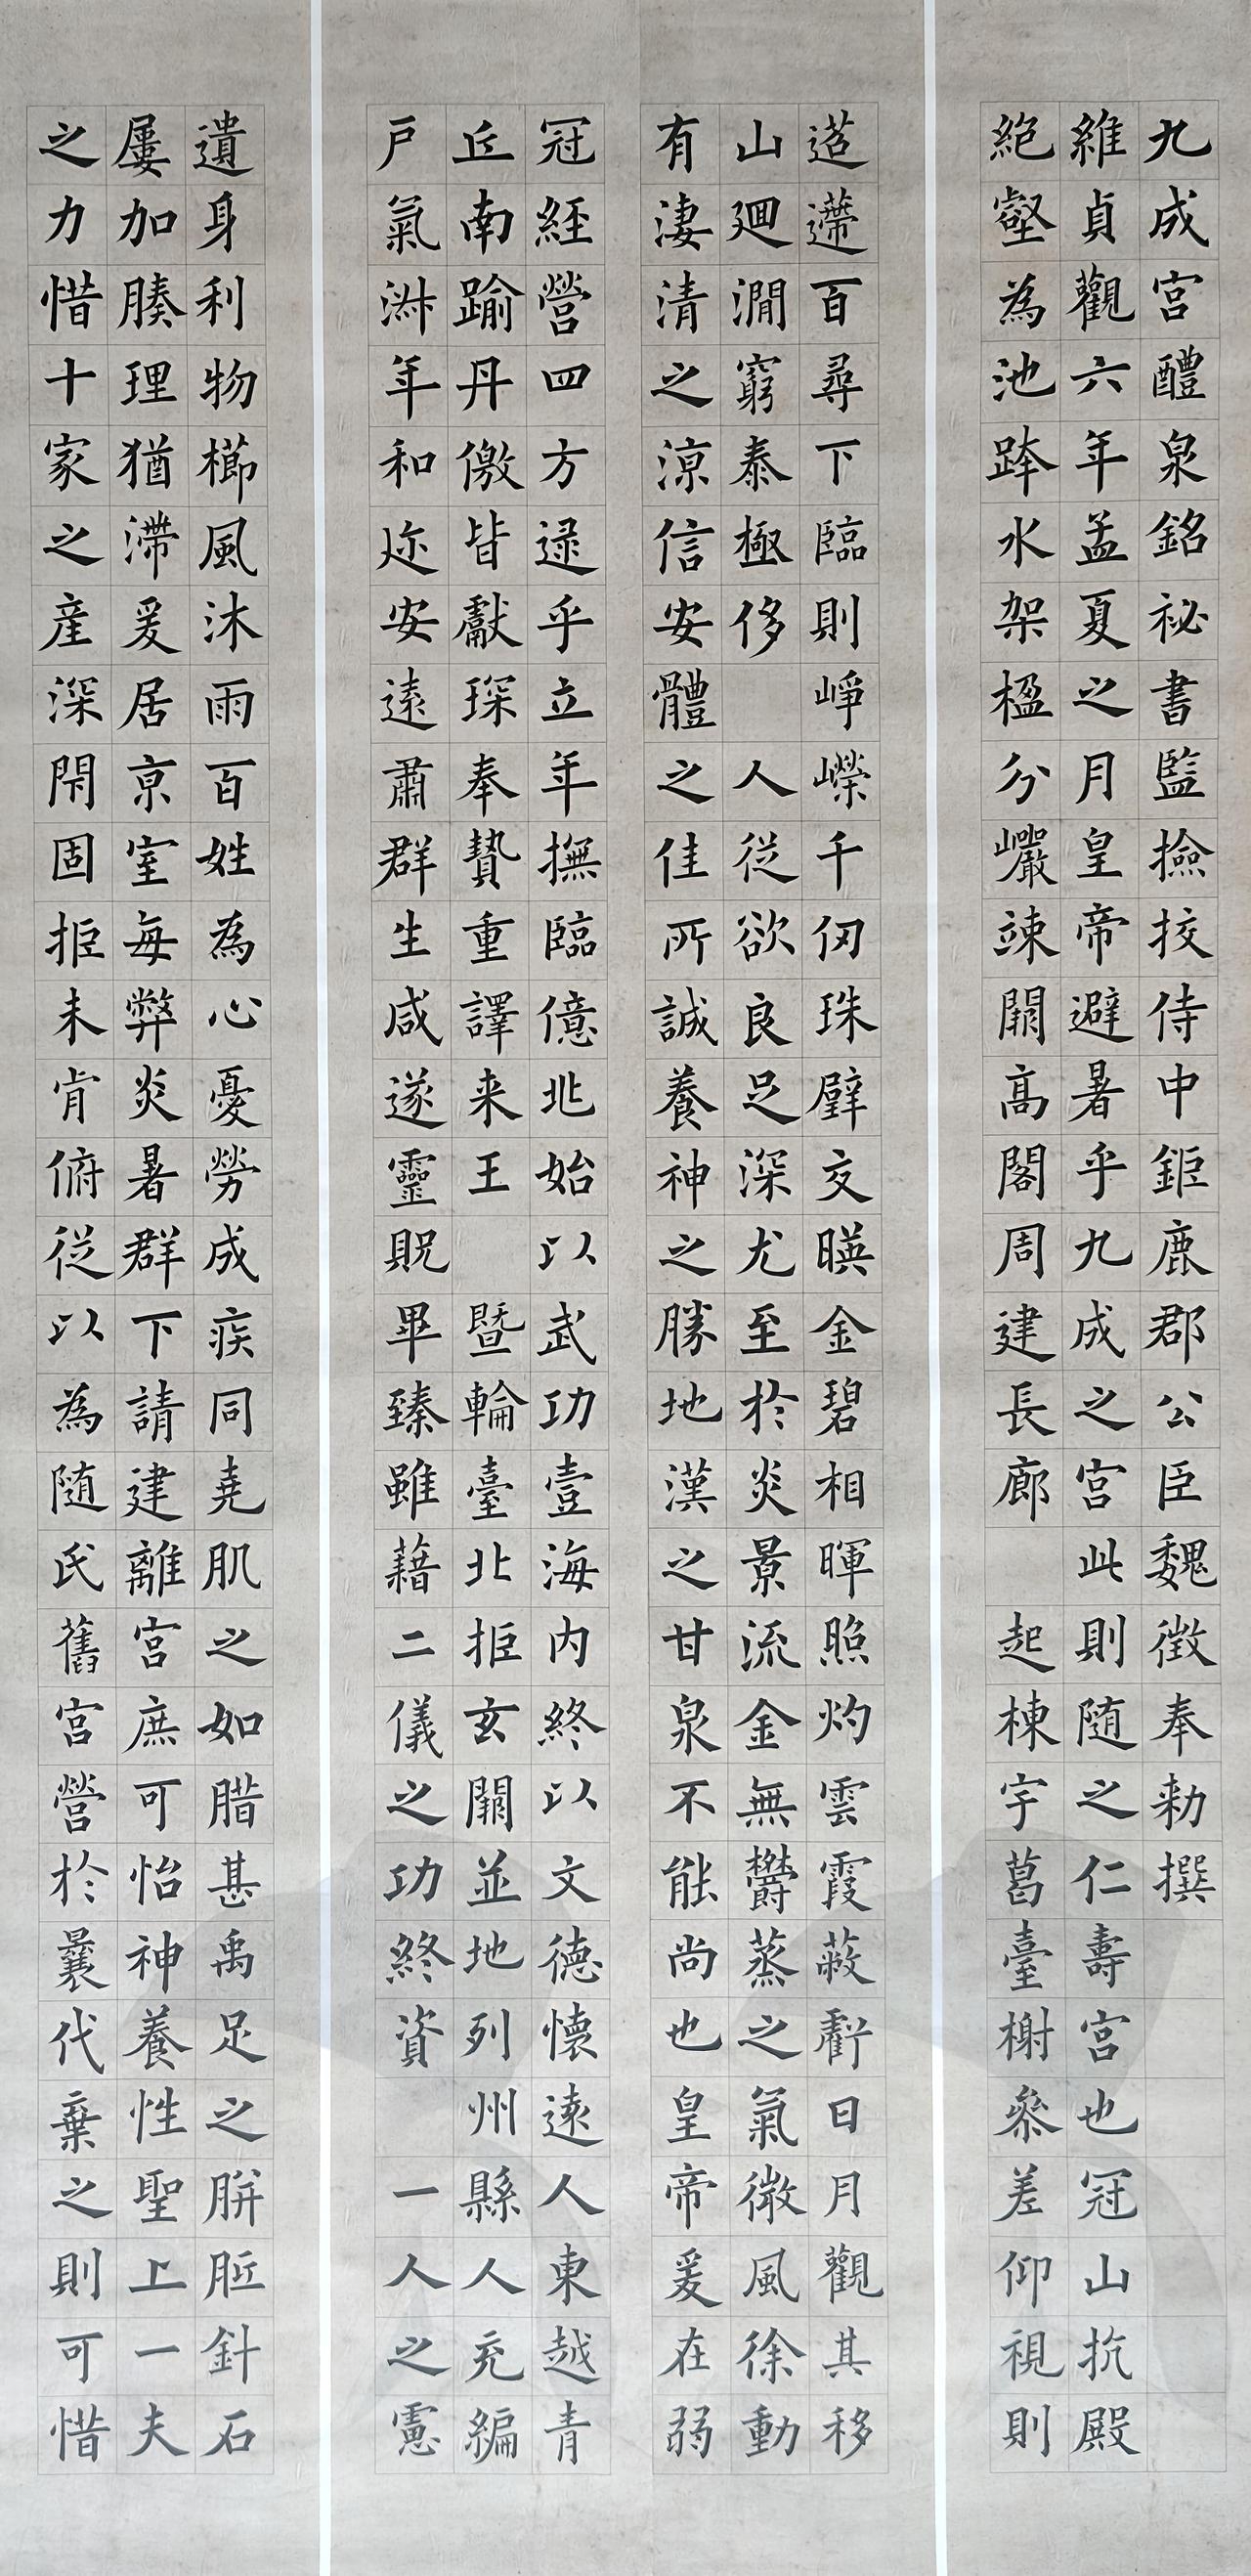 九成宮醴泉銘祕書監撿挍侍中鉅鹿郡公臣魏徵奉勑撰
維貞觀六年孟夏之月皇帝避暑乎九成之宮此則随之仁壽宮也冠山抗殿
絕壑為池跨水架楹分巖竦闕高閣周建長廊起棟宇葛臺榭叅差仰視則
迢遰百尋下臨則崢嶸千仞珠璧交暎金碧相暉照灼雲霞蔽虧日月觀其移
山廻澗窮泰極侈人從欲良足深尤至於炎景流金無欝蒸之氣微風徐動
有淒清之涼信安體之佳所誠養神之勝地漢之甘泉不能尚也皇帝爰在弱
冠經營四方逯乎立年撫臨億兆始以武功壹海內終以文德懷遠人東越青
丘南踰丹儌皆獻琛奉贄重譯来王暨輪臺北拒玄闕並地列州縣人充編
戶氣淋年和迩安遠肅群生咸遂靈貺畢臻雖藉二儀之功終資一人之慮
遺身利物櫛風沐雨百姓為心憂勞成疾同堯肌之如腊甚禹足之胼胝針石
屢加腠理猶滯爰居京室每弊炎暑群下請建離宮庶可怡神養性聖上一夫
之力惜十家之産深閇固拒未肯俯從以為随氏舊宮營於曩代棄之則可惜